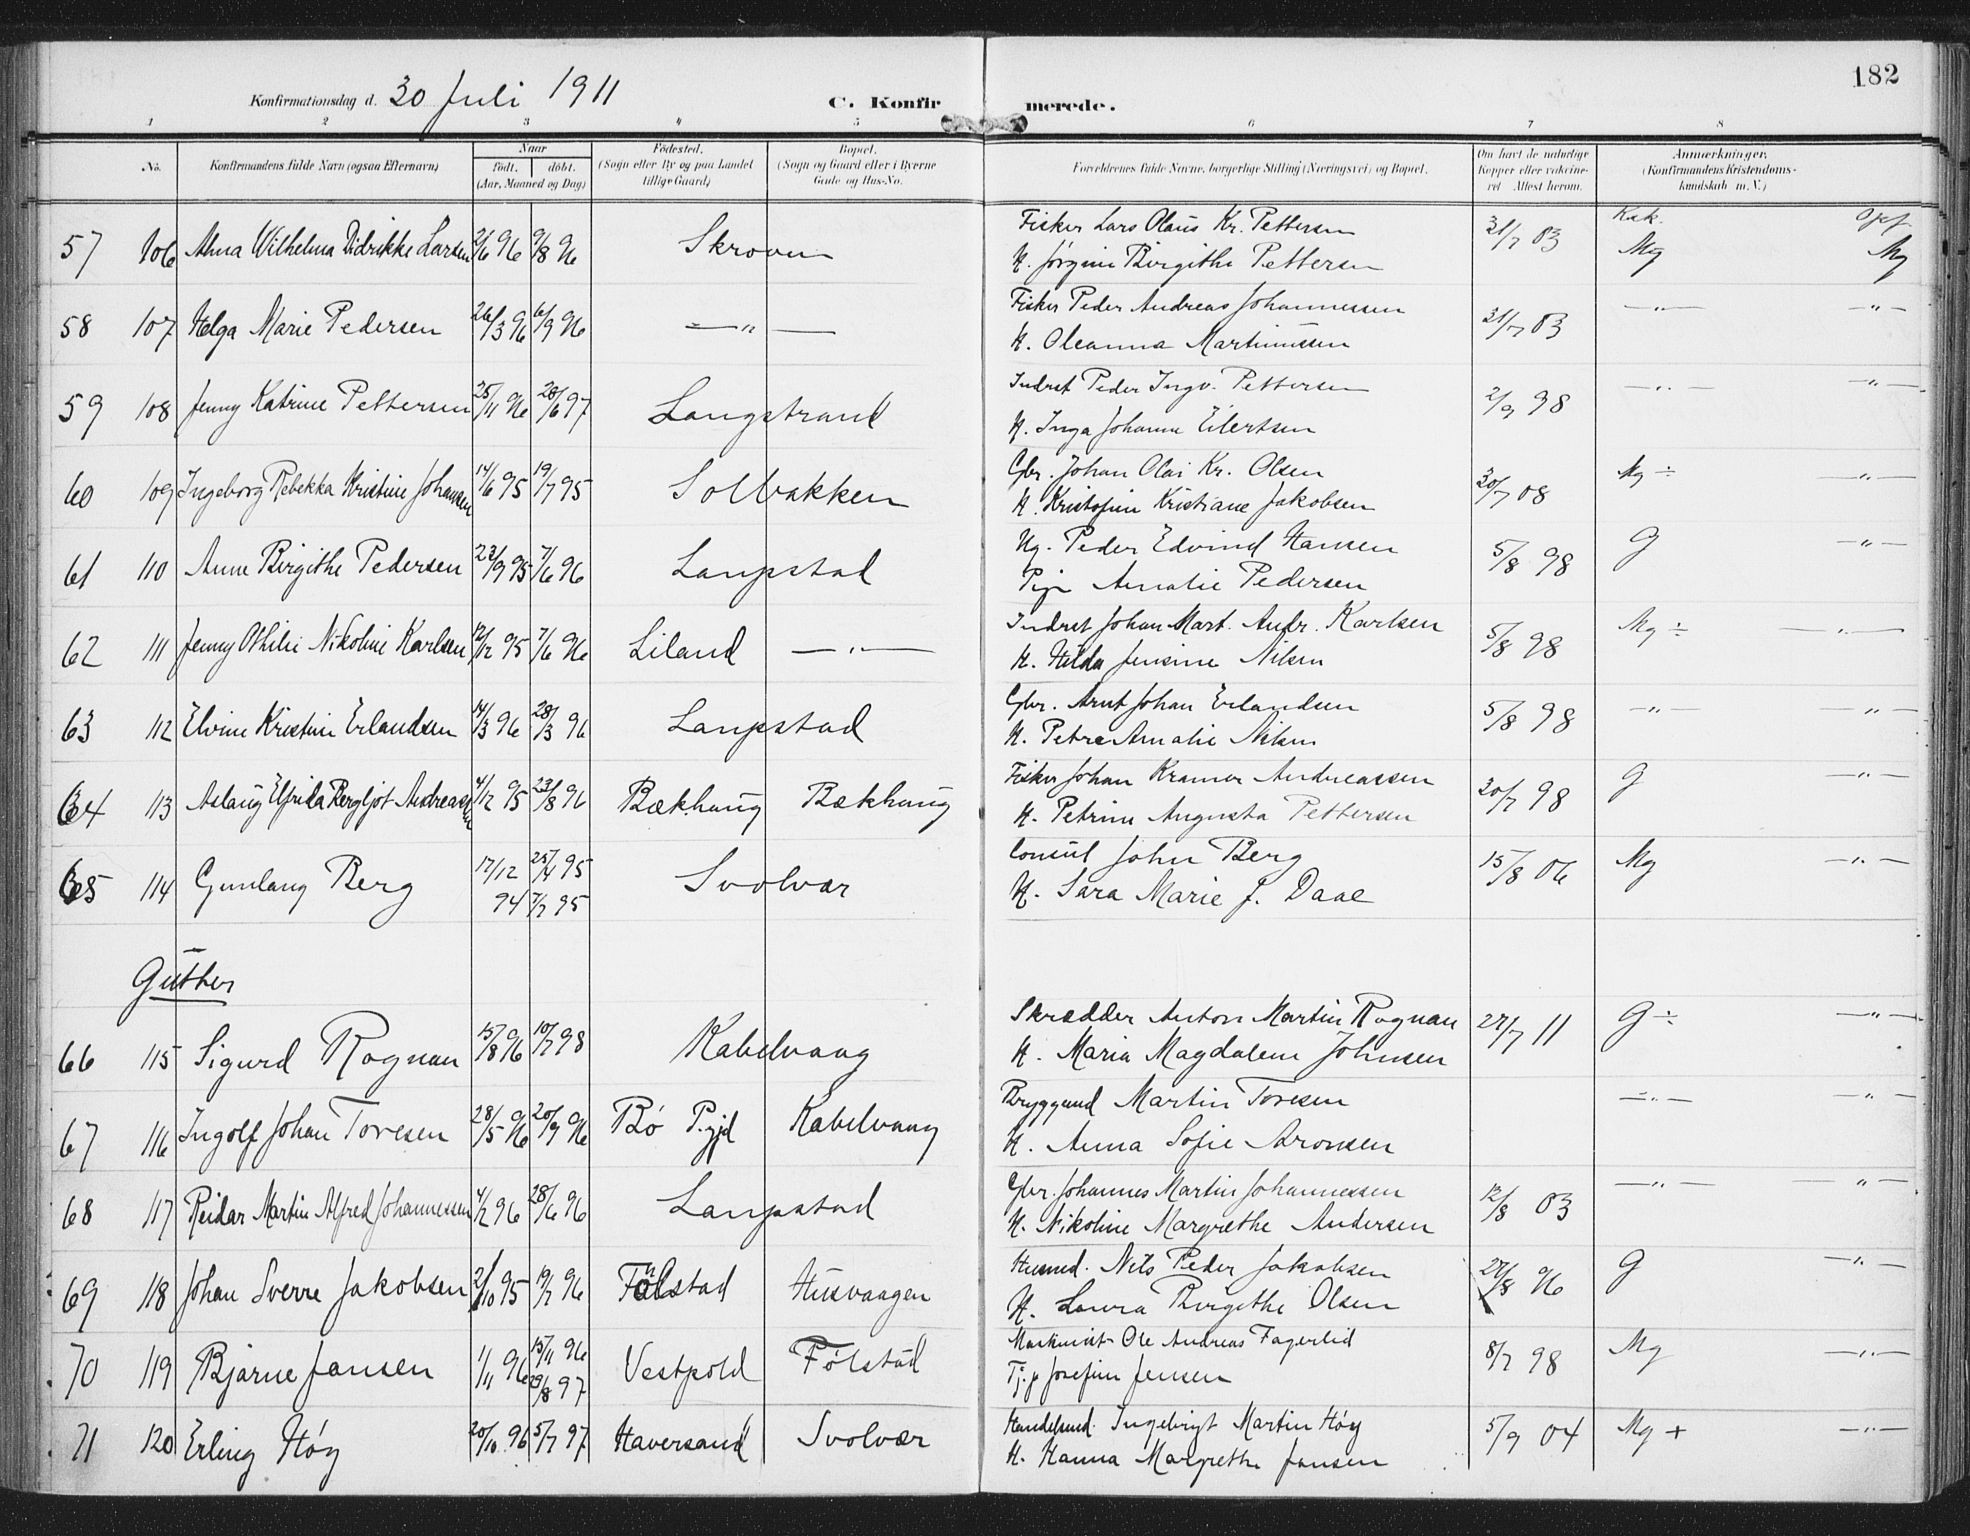 182
Konfirmationsdag d. 30 Juli 1911 C. Konfirmerede.
1 2 3 4 5 6 7 8
No. Konfirmandens fulde Navn (ogsaa Efternavn) Naar født. døbt. (Aar, Maaned og Dag) Fødested. (Sogn eller By og paa Landet tillige Gaard) Bopæl. (Sogn og Gaard eller i Byerne Gade og Hus-No. Forældrenes fulde Navne, borgerlige Stilling (Næringsvei) og Bopæl. Om havt de naturlige Kopper eller vaccineret Attest herom. Anmærkninger. (Konfirmandens Kristendomskundskab m. V.)
57 106 Alma Wilhelma Didrikke Larsen 2/6 96 9/8 96 Skroven Fisker Lars Olaus Kr. Pettersen 31/7 03 Mg Mg
H. Jørgine Birgithe Pettersen
58 107 Helga Marie Pedersen 26/3 96 6/9 96 — " — Fisker Peder Andreas Johannessen 31/7 03 — " — — " —
H. Oleanna Martinussen
59 108 Jenny Katrine Pettersen 25/11 96 28/6 97 Langstrand Indrst Peder Ingv. Pettersen 2/9 98 — " — — " —
H. Inga Johanne Eilertsen
60 109 Ingeborg Rebekka Kristine Johansen 14/6 95 19/7 95 Solbakken Gbr. Johan Olai Kr. Olsen 30/7 08 Mg ÷ — " —
H. Kristofine Kristiane Jakobsen
61 110 Anne Birgithe Pedersen 23/9 95 7/6 96 Laupstad Ug. Peder Edvind Hansen 5/8 98 G — " —
Pige Amalie Pedersen
62 111 Jenny Othilie Nikoline Karlsen 12/12 95 7/6 96 Liland — " — Indrst Johan Mart. Andr. Karlsen 5/8 98 Mg ÷ — " —
H. Hilda Jensine Nilsen
63 112 Elvine Kristine Erlandsen 14/3 96 28/3 96 Laupstad Gbr. Arnt Johan Erlandsen 5/8 98 — " — — " —
H. Petra Amalie Nilsen
64 113 Aslaug Elfrida Bergljot Andreassen 4/12 95 23/8 96 Bækhaug Bækhaug Fisker Johan Kramer Andreassen 20/7 98 G — " —
H. Petrine Augusta Pettersen
65 114 Gunlaug Berg 17/12 94 25/4 95 7/7 95 Svolvær Consul John Berg 15/8 06 Mg — " —
H. Sara Marie J. Daae
Gutter
66 115 Sigurd Rognan 15/8 96 10/7 98 Kabelvaag Skrædder Anton Martin Rognan 27/7 11 G ÷ — " —
H. Maria Magdalene Johnsen
67 116 Ingolf Johan Toresen 28/5 96 20/9 96 Bø P.gjd Kabelvaag Bryggemd Martin Toresen — " — — " —
H. Anna Sofie Aronsen
68 117 Reidar Martin Alfred Johannessen 4/2 96 28/6 96 Laupstad Gbr. Johannes Martin Johannessen 12/8 03 — " — — " —
H. Nikoline Margrethe Andersen
69 118 Johan Sverre Jakobsen 2/10 95 19/7 96 Følstad Husvaagen Husmd. Nils Peder Jakobsen 27/8 96 G — " —
H. Laura Birgithe Olsen
70 119 Bjarne Jansen 1/11 96 15/11 96 29/8 97 Vestpold Følstad Maskinist Ole Andreas Fagerlid 8/7 98 Mg — " —
Tj.p Josefine Jensen
71 120 Erling Høy 20/10 96 5/7 97 Haversand Svolvær Handelsmd. Ingebrigt Martin Høy 5/9 04 Mg + — " —
H. Hanna Margrethe Jansen